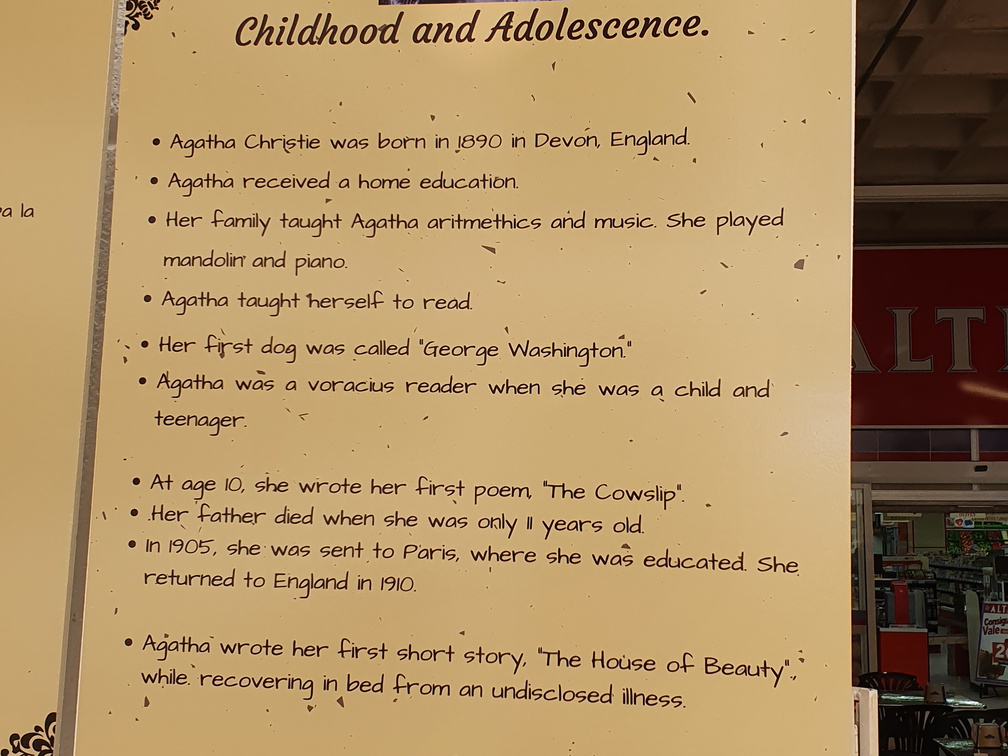 Childhood and Adolescence.
• Agatha Christie was born in 1890 in Devon, England.
• Agatha received a home education.
• Her family taught Agatha aritmethics and music. She played
mandolin and piano.
• Agatha taught herself to read.
• Her first dog was called "George Washington."
• Agatha was a voracius reader when she was a child and
teenager.
• At age 10, she wrote her first poem, "The Cowslip".
• Her father died when she was only 11 years old.
• In 1905, she was sent to Paris, where she was educated. She
returned to England in 1910.
• Agatha wrote her first short story, "The House of Beauty",
while recovering in bed from an undisclosed illness.
la
ALT
ALT
Consigu
Vale